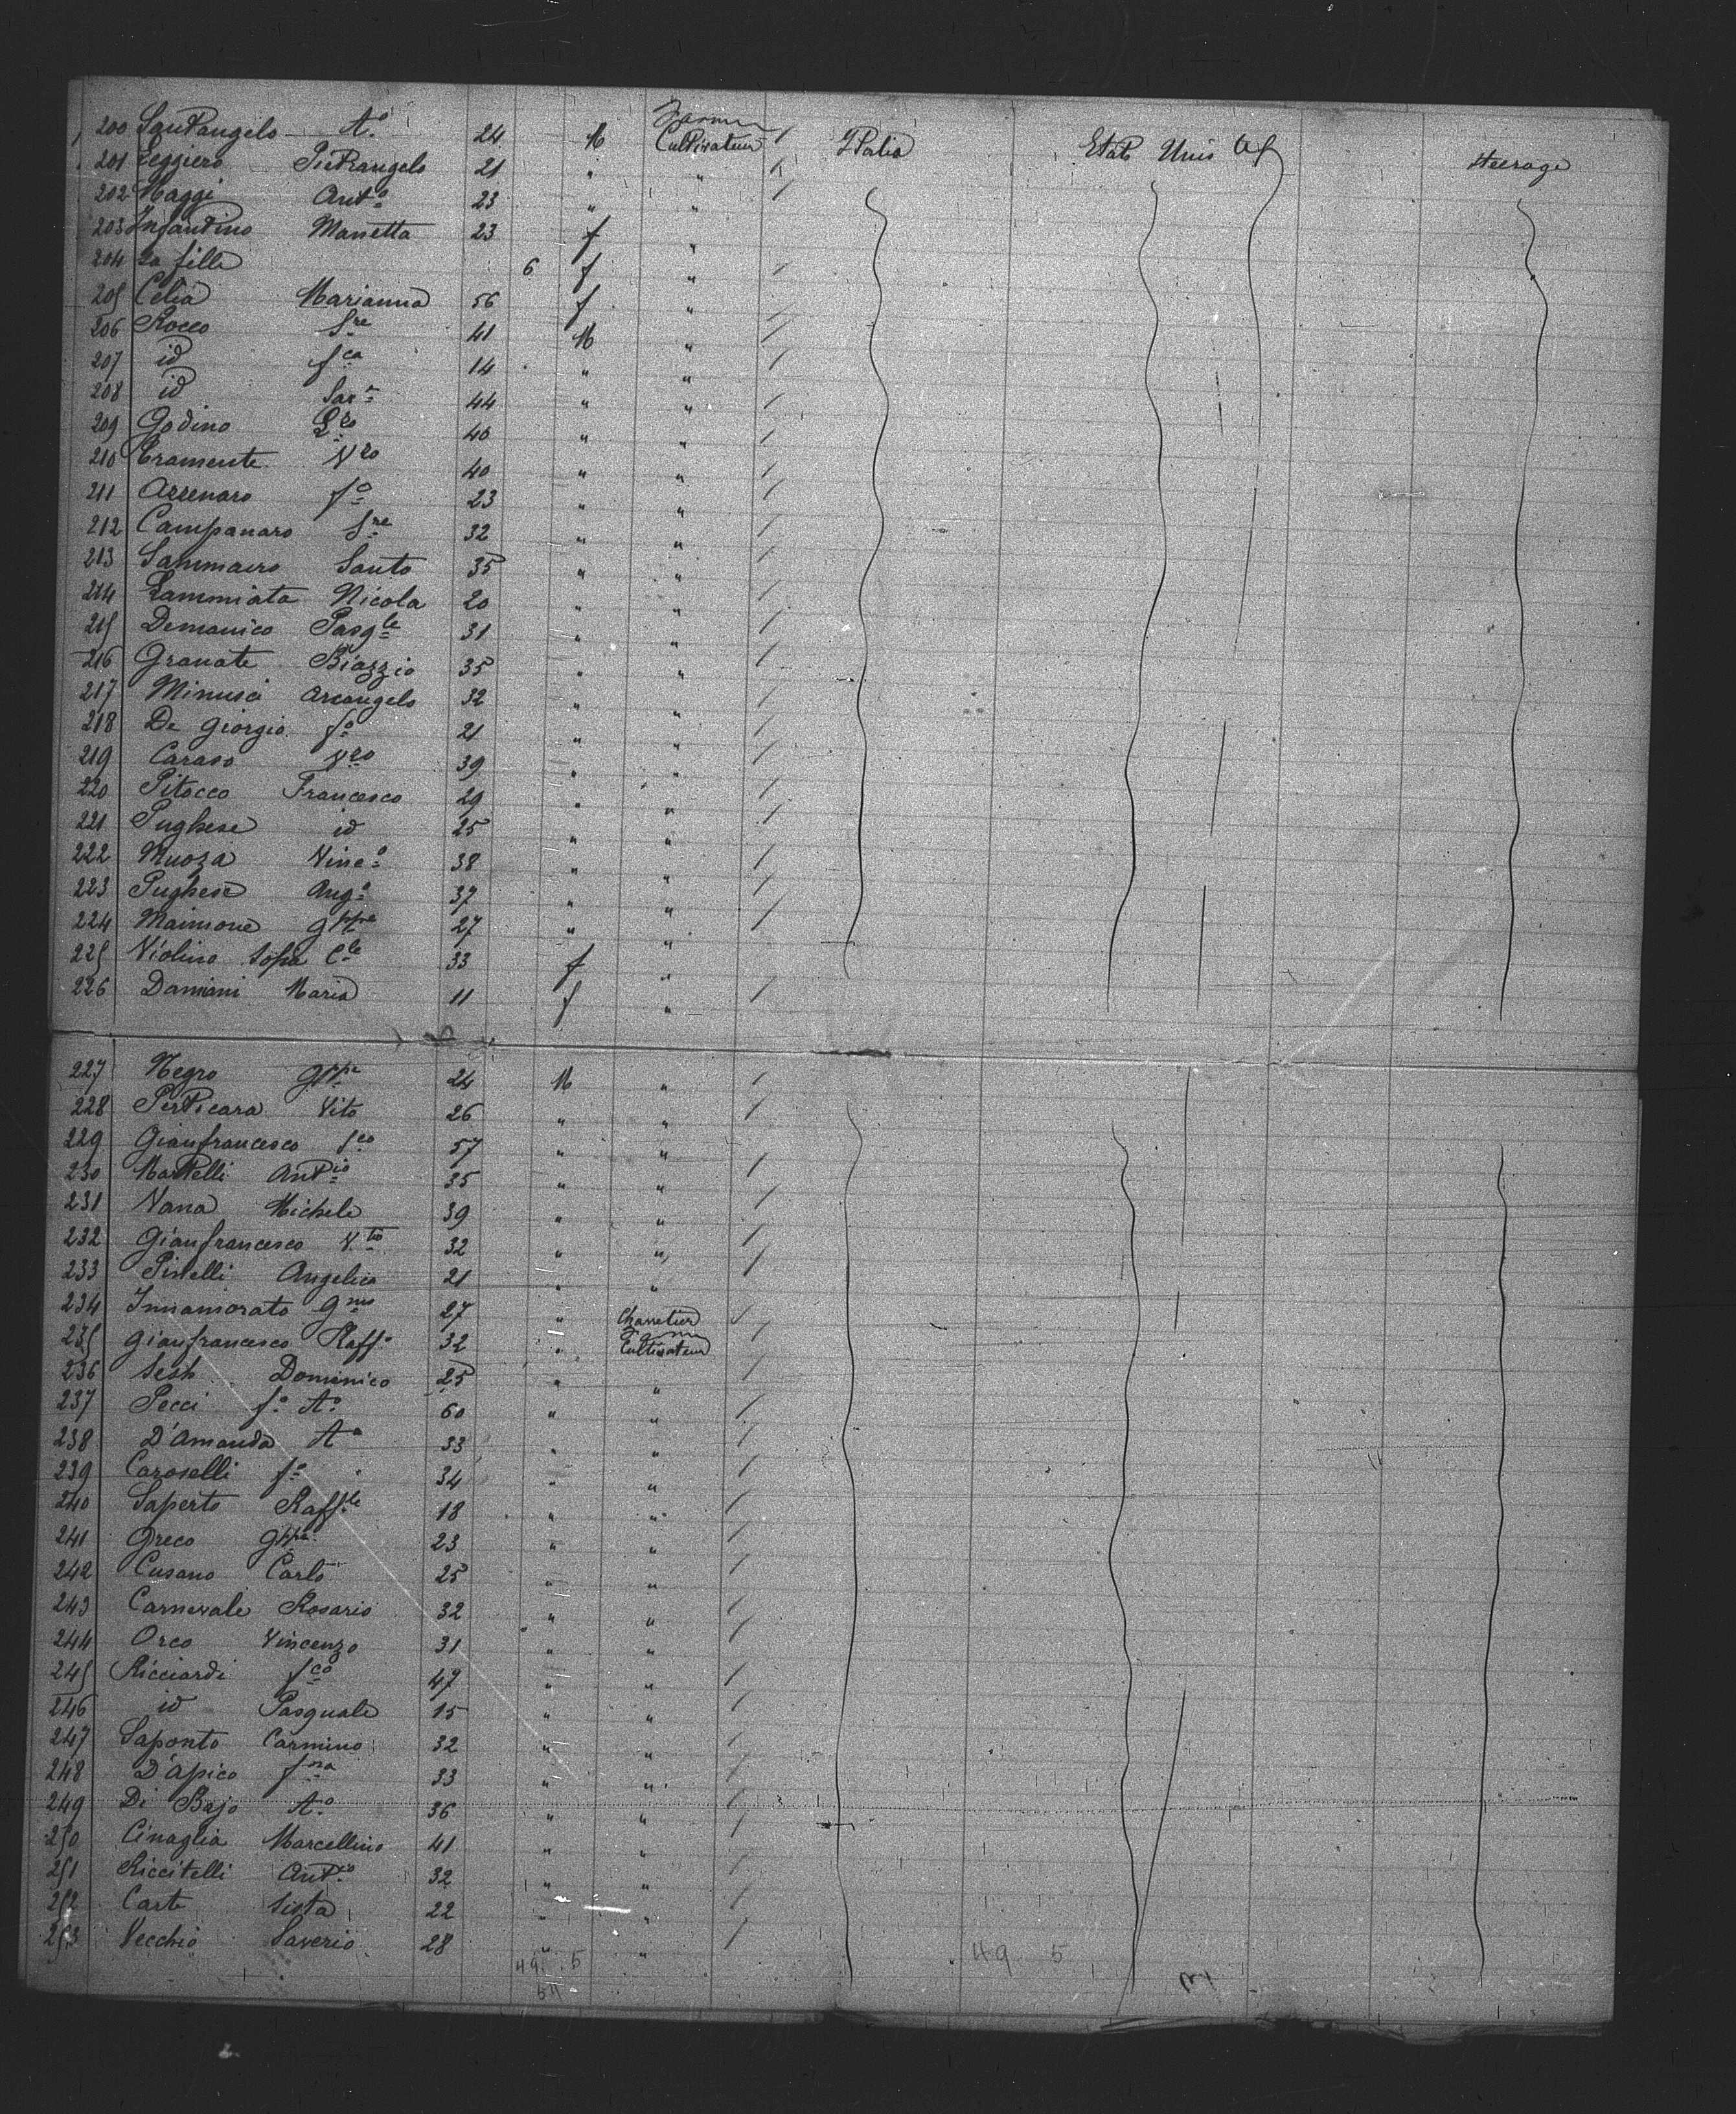 Farmer
200 Santangelo Aº 24 M Cultivateur Italia Etats Unis steerage
201 Leggiero Pietrangelo 21 " "
202 Maggi Antº 23 " "
203 Infantino Marietta 23 f "
204 La fille 6 f "
205 Celia Marianna 56 f "
206 Rocco Sre 41 M "
207 id fca 14 " "
208 id Sarº 44 " "
209 Godino Lzo 40 " "
210 Cramente Vzo 40 " "
211 Azzenaro fº 23 " "
212 Campanaro Sre 32 " "
213 Sammauro Santo 35 " "
214 Zammiata Nicola 20 " "
215 Demanico Pasqle 31 " "
216 Granate Biazzio 35 " "
217 Minusci Arcangelo 32 " "
218 De Giorgio fº 21 " "
219 Caraso Vzo 39 " "
220 Pitocco Francesco 29 " "
221 Pughese id 25 " "
222 Muoza Vincº 38 " "
223 Pughese Angº 37 " "
224 Maimone Gppe 27 " "
225 Violino Sofia Cle 33 f "
226 Damiani Maria 11 f "
227 Negro Gppe 24 M "
228 Perticara Vito 26 " "
229 Gianfrancesco fco 57 " "
230 Martelli Antio 35 " "
231 Nana Michele 39 " "
232 Gianfrancesco V.to 32 " "
233 Pirelli Angelico 21 " "
234 Innamorato Gnio 27 " Charretier
Farmer
235 Gianfrancesco Raffº 32 " Cultivateur
236 Sesto Domenico 25 " "
237 Pecci fº Aº 60 " "
238 D'Amanda Aº 33 " "
239 Caroselli fº 34 " "
240 Saperto Raffle 18 " "
241 Greco Gppe 23 " "
242 Cusano Carlo 25 " "
243 Carnevale Rosario 32 " "
244 Orco Vincenzo 31 " "
245 Ricciardi fco 47 " "
246 id Pasquale 15 " "
247 Saponto Carmino 32 " "
248 D'Apico fna 33 " "
249 Di Bajo Aº 36 " "
250 Cinaglia Marcellino 41 " "
251 Riccitelli Antio 32 " "
252 Carte Sista 22 " "
253 Vecchio Saverio 28 " "
49 5 49 5
54